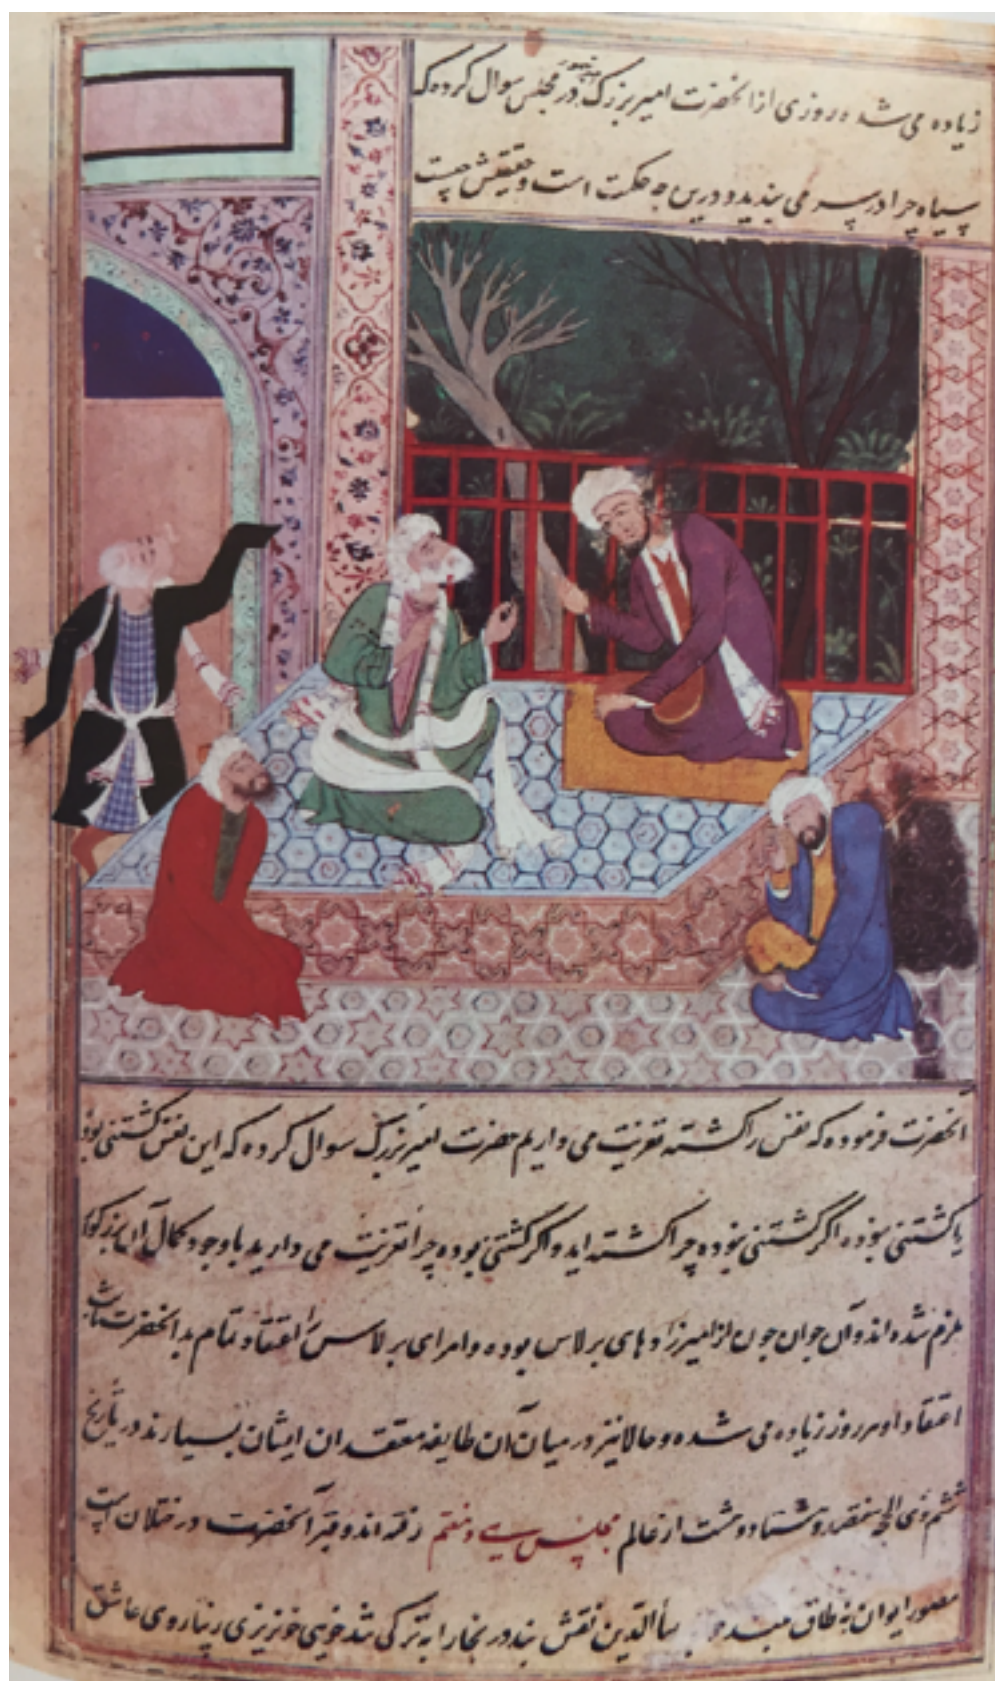 زیاده می شده روزی از آنحضرت امیر بزرگ در مجلس سوال کرده که
سیاه چرا در سر می بندید و درین چه حکمت است و حقیقتش چیست
آنحضرت فرموده که نفس را کشته تعزیت می داریم حضرت امیر بزرگ سوال کرده که این نفس کشتنی بود
یا کشتنی نبوده اگر کشتنی نبوده چرا کشته اید و اگر کشتنی بوده چرا تعزیت می دارید با وجود کمال آن بزرگوار
ملزم شده اند و آن جوان چون از امیرزاده های برلاس بوده و امرای برلاس را اعتقاد تمام بدانحضرت
اعتقاد او هر روز زیاده می شده و حالا نیز در میان آن طایفه معتقدان ایشان بسیارند در تاریخ
ششم ذی الحجه هفتصد و هشتاد و هشت از عالم رفته اند و قبر آنحضرت در ختلان است مجلس سی و هفتم
ایوان نه طاق خواجه بهاالدین نقش بند در بخارا به ترکی شوخی خونریزی زیباروی عاشق